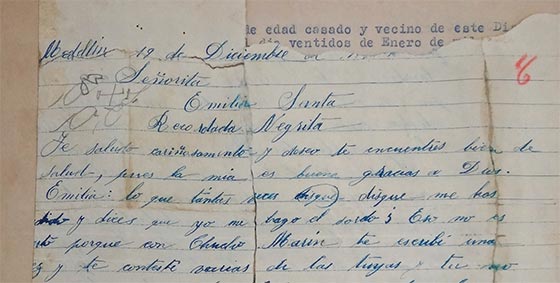 de edad casado y vecino de este Di
dia ventidos de Enero de mil
Medellin 19 de Diciembre de
6
Señorita
Emilia Santa
Recordada Negrita
Te saludo cariñosamente y deseo te encuentres bien de
salud, pues la mia es buena gracias a Dios.
Emilia: lo que tántas veces disque disque me has
dido y dices que yo me hago el sordo; Eso no es
porque con Chucho Marin te escribí una
y te contesté varias de las tuyas y tu no